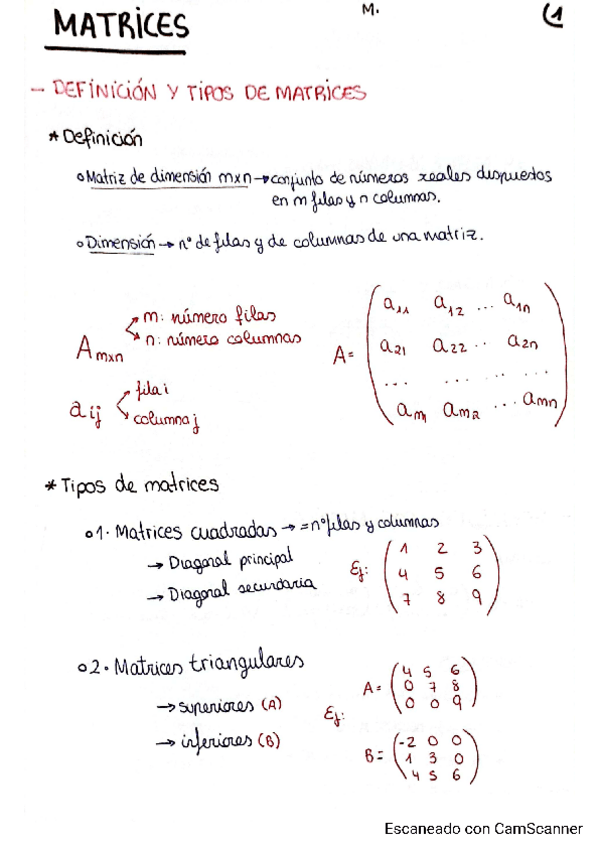 M.
(1
MATRICES
- DEFINICIÓN Y TIPOS DE MATRICES
* Definición
o Matriz de dimensión mxn → conjunto de números reales dispuestos
en m filas y n columnas.
o Dimensión → nº de filas y de columnas de una matriz.
A mxn
m: número filas
n: número columnas
a ij
fila i
columna j
A =
a11 a12 ... a1n
a21 a22 .. a2n
... ... .. ...
am1 am2 ... amn
* Tipos de matrices
o 1. Matrices cuadradas → = nº filas y columnas
→ Diagonal principal
→ Diagonal secundaria
Ej:
1 2 3
4 5 6
7 8 9
o 2. Matrices triangulares
→ superiores (A)
→ inferiores (B)
Ej:
A =
4 5 6
0 7 8
0 0 9
B =
-2 0 0
1 3 0
4 5 6
Escaneado con CamScanner